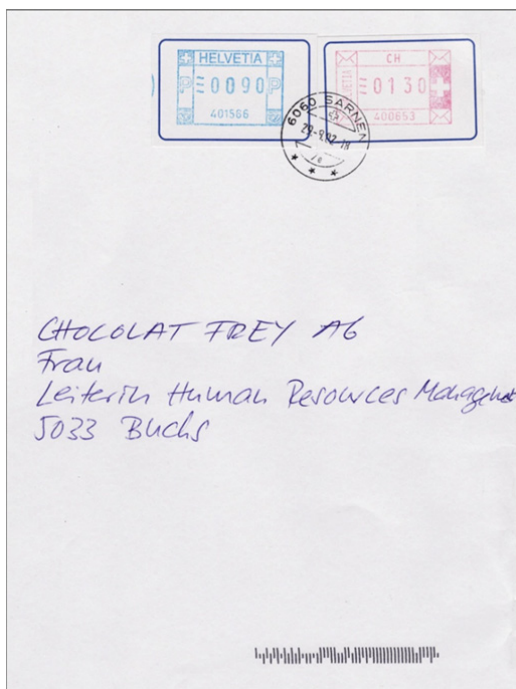 HELVETIA
P 0090 P
401586
CH
HELVETIA
0130
400653
6060 SARNEN
CHOCOLAT FREY AG
Frau
Leiterin Human Resources Management
5033 Buchs